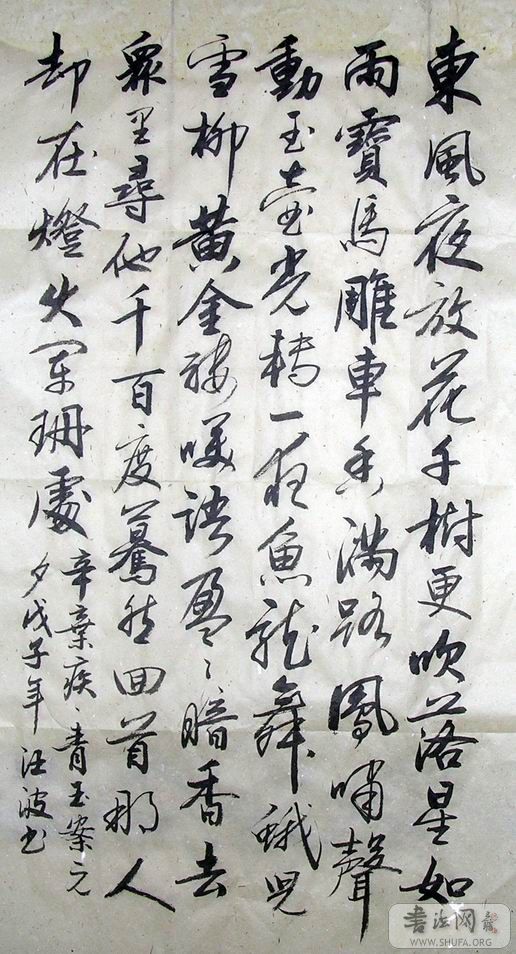 東風夜放花千樹更吹落星如
雨寶馬雕車香滿路鳳嘯聲
動玉壺光轉一夜魚龍舞蛾兒
雪柳黃金褸咲語盈〻暗香去
眾里尋他千百度驀然回首那人
却在燈火闌珊處
辛棄疾、青玉案元
夕戊子年汪波书
書法网
WWW.SHUFA.ORG